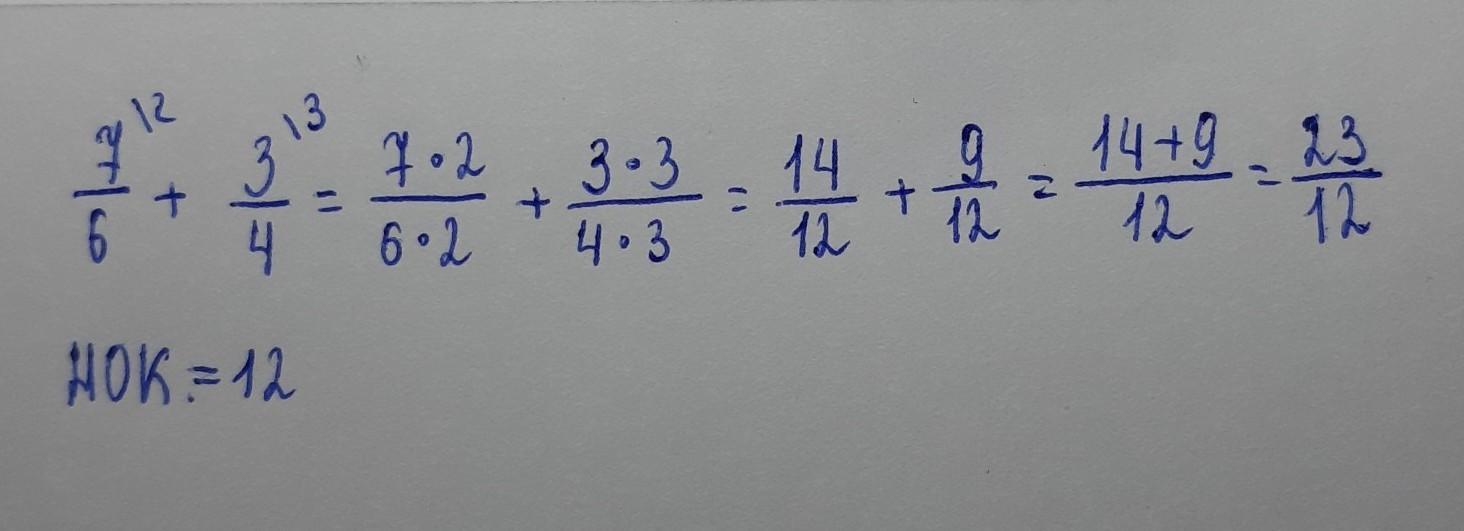 7\2/6 + 3\3/4 = 7·2/6·2 + 3·3/4·3 = 14/12 + 9/12 = 14+9/12 = 23/12
НОК.=12